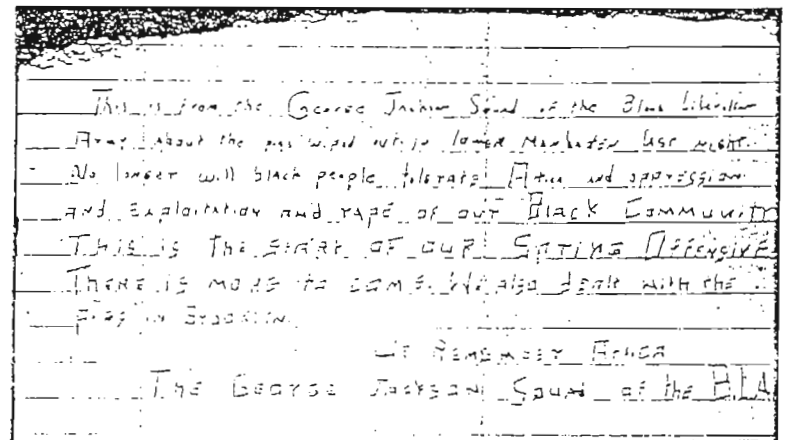 This is from the George Jackson Squad of the Black Liberation
Army about the pigs wiped out in lower Manhatten last night.
No longer will black people tolerate Attica and oppression
and exploitation and rape of our Black Community
This is the start of our Spring Offensive
There is more to come. We also dealt with the
pigs in Brooklyn.
We Remember Attica
The George Jackson Squad of the B.L.A.